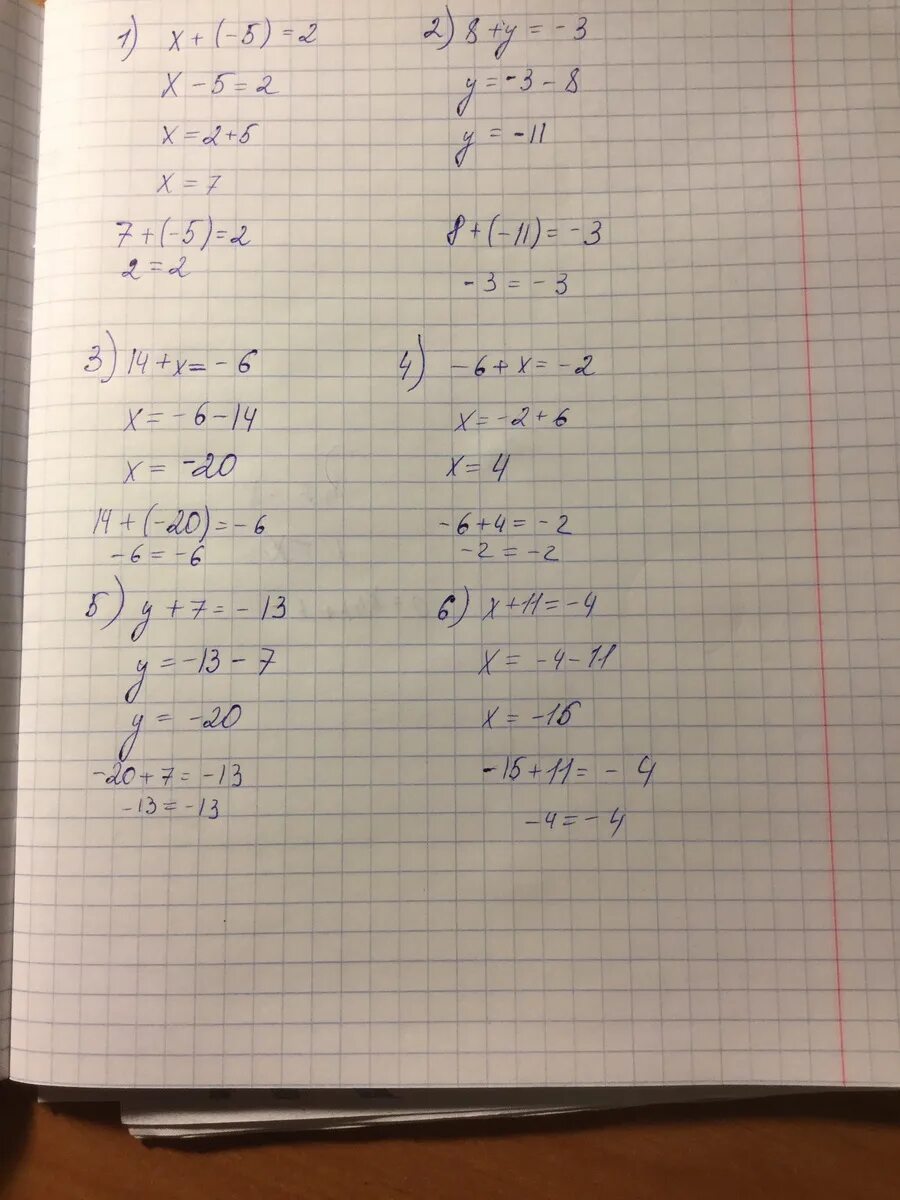 1) x + (-5) = 2
x - 5 = 2
x = 2 + 5
x = 7
7 + (-5) = 2
2 = 2
2) 8 + y = -3
y = -3 - 8
y = -11
8 + (-11) = -3
-3 = -3
3) 14 + x = -6
x = -6 - 14
x = -20
14 + (-20) = -6
-6 = -6
4) -6 + x = -2
x = -2 + 6
x = 4
-6 + 4 = -2
-2 = -2
5) y + 7 = -13
y = -13 - 7
y = -20
-20 + 7 = -13
-13 = -13
6) x + 11 = -4
x = -4 - 11
x = -15
-15 + 11 = -4
-4 = -4